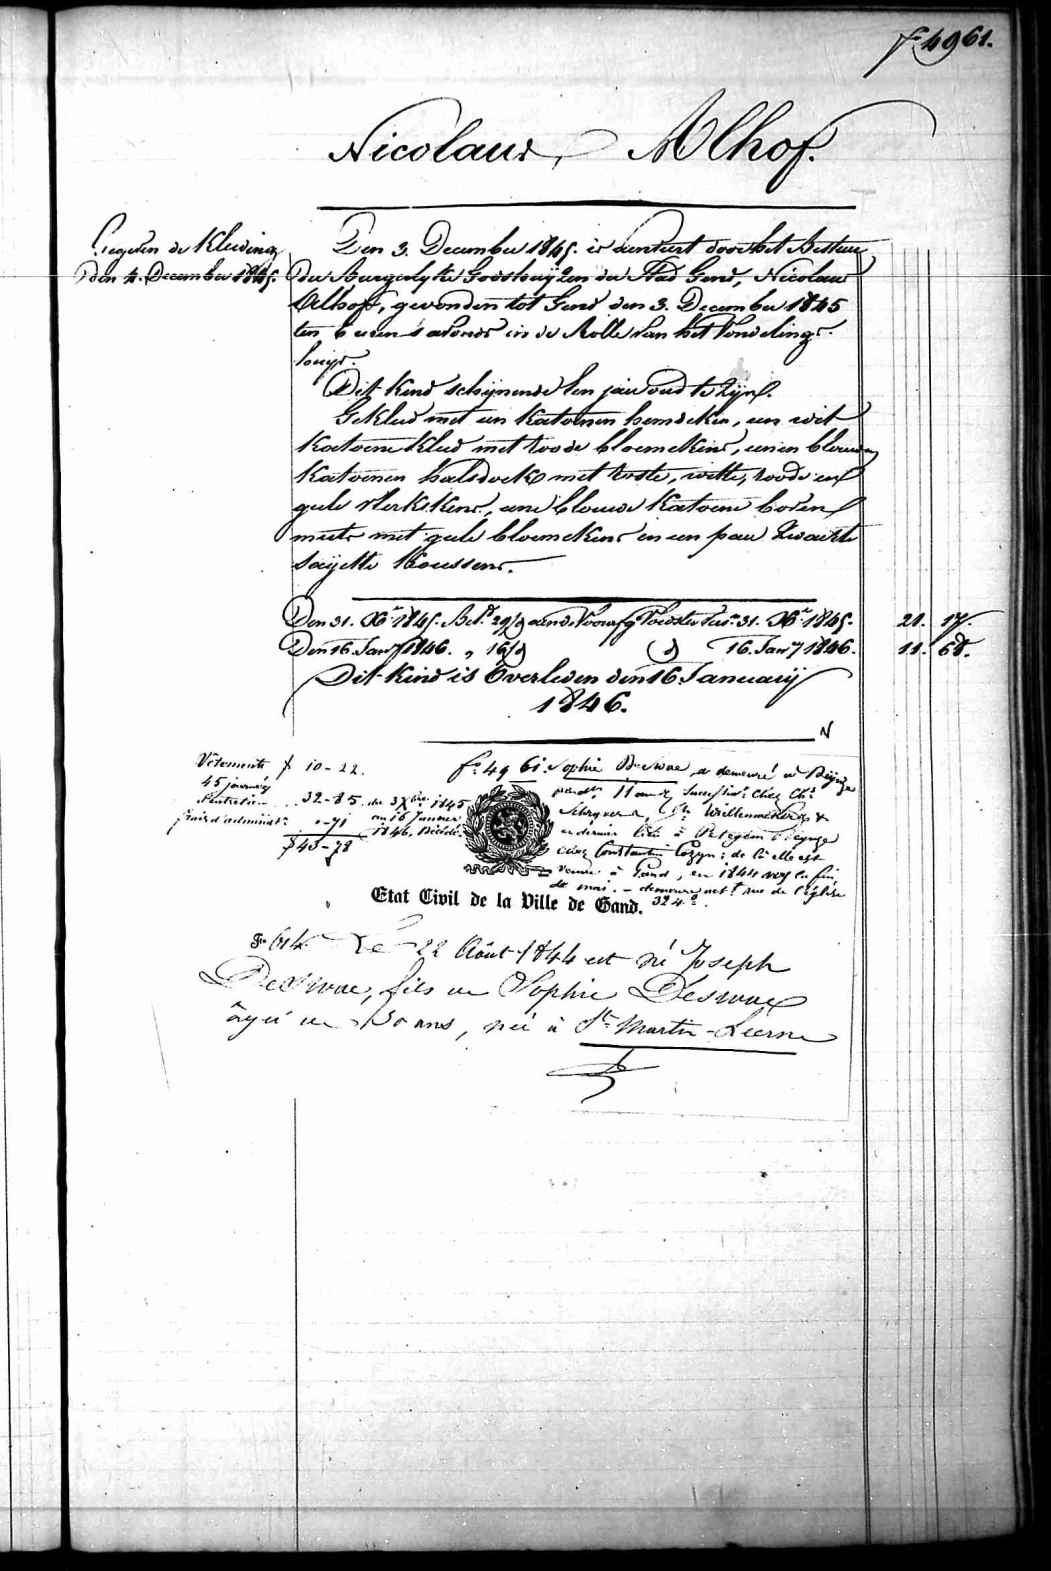 fo 4961.
Nicolaus Alhoff.
Gegeven de Kleeding
den 4. December 1845.
Den 3. December 1845. is aenveert door het Bestuur
der Burgerlyke Godshuijzen der Stad Gend, Nicolaus
Alhoff, gevonden tot Gend den 3. December 1845
ten 6 uren s'avonds in de Rolle van het Vondelings-
huys.
Dit kind schijnende een jaar oud te zijn.
Gekleed met een katoenen hemdeken, een wit
katoene kleed met roode bloemekens, eenen blauwen
katoenen halsdoek met witte, roode en
gele sterkskens, eene blauwe katoene boven
muts met gele bloemekens en een paar zwarte
sayette koussens.
Den 31. Xbr 1845. Bet. 29 aen de Voorsz Voedster tus. 31. Xbr 1845. 21. 17.
Den 16. Jany 1846. " 16 16. Jany 1846. 11. 68.
Dit Kind is Overleden den 16. Januarij
1846.
N
Vêtements f 10-22.
45 journées
d'entretien 32-85 du 3 Xbre 1845
frais d'administ. 0-71 au 16 Janvier
1846, décédé.
f 43-78
fo 4961. Sophie Deswae, a demeuré à
pendt 11 ans chez
Schryver
en dernier lieu à Petegem
chez Constantin Cozyn; de là elle est
venue à Gand, en 1844 vers la fin
de mai. - demeure act. rue de l'église
324.
Etat Civil de la Ville de Gand.
Fo 614. Le 22 Août 1844 est né Joseph
Deswae, fils de Sophie Deswae
âgée de 30 ans, née à St Martin-Lierne